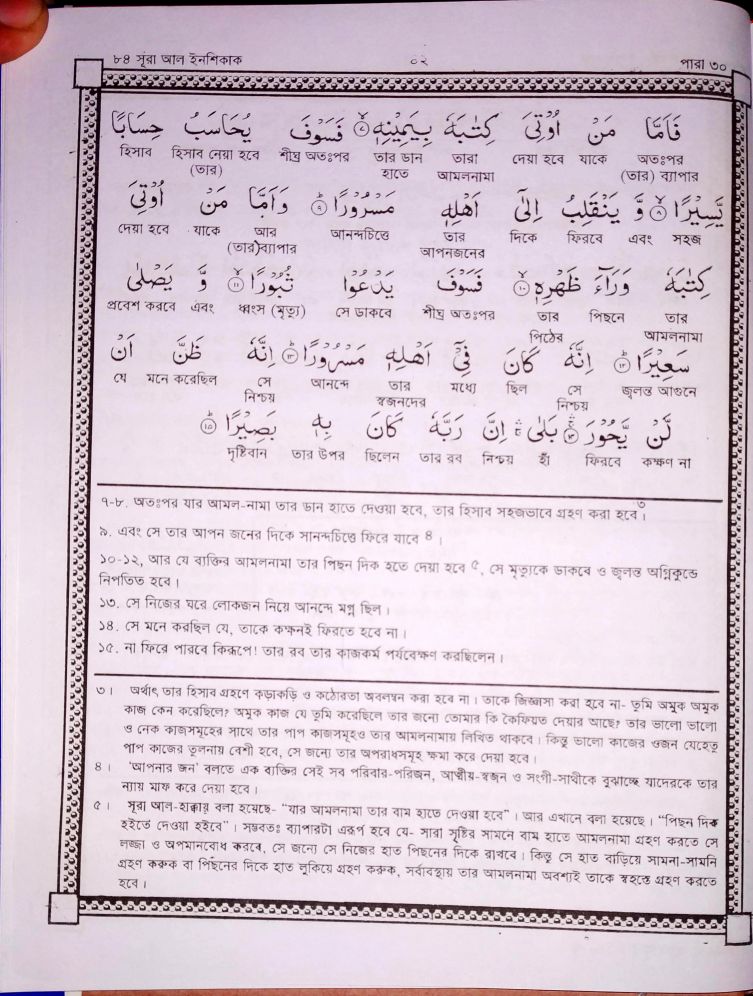 ৮৪ সূরা আল ইনশিকাক ০২ পারা ৩০
فَاَمَّا مَنْ اُوْتِیَ كِتٰبَهٗ بِیَمِیْنِهٖ ۙ﴿۷﴾ فَسَوْفَ یُحَاسَبُ حِسَابًا
হিসাব হিসাব নেয়া হবে শীঘ্র অতঃপর তার ডান তারা দেয়া হবে যাকে অতঃপর
(তার) হাতে আমলনামা (তার) ব্যাপার
یَّسِیْرًا ۙ﴿۸﴾ وَّ یَنْقَلِبُ اِلٰۤی اَهْلِهٖ مَسْرُوْرًا ؕ﴿۹﴾ وَاَمَّا مَنْ اُوْتِیَ
দেয়া হবে যাকে আর আনন্দচিত্তে তার দিকে ফিরবে এবং সহজ
(তার)ব্যাপার আপনজনের
كِتٰبَهٗ وَرَآءَ ظَهْرِهٖ ۙ﴿۱۰﴾ فَسَوْفَ یَدْعُوْا ثُبُوْرًا ۙ﴿۱۱﴾ وَّ یَصْلٰی
প্রবেশ করবে এবং ধ্বংস (মৃত্যু) সে ডাকবে শীঘ্র অতঃপর তার পিছনে তার
পিঠের আমলনামা
سَعِیْرًا ؕ﴿۱۲﴾ اِنَّهٗ كَانَ فِیْۤ اَهْلِهٖ مَسْرُوْرًا ؕ﴿۱۳﴾ اِنَّهٗ ظَنَّ اَنْ
যে মনে করেছিল সে আনন্দে তার মধ্যে ছিল সে জ্বলন্ত আগুনে
নিশ্চয় স্বজনদের নিশ্চয়
لَّنْ یَّحُوْرَ ۚ﴿۱۴﴾ بَلٰۤی ۚ اِنَّ رَبَّهٗ كَانَ بِهٖ بَصِیْرًا ؕ﴿۱۵﴾
দৃষ্টিবান তার উপর ছিলেন তার রব নিশ্চয় হাঁ ফিরবে কক্ষণ না
৭-৮. অতঃপর যার আমল-নামা তার ডান হাতে দেওয়া হবে, তার হিসাব সহজভাবে গ্রহণ করা হবে৩।
৯. এবং সে তার আপন জনের দিকে সানন্দচিত্তে ফিরে যাবে ৪।
১০-১২, আর যে ব্যক্তির আমলনামা তার পিছন দিক হতে দেয়া হবে ৫, সে মৃত্যুকে ডাকবে ও জ্বলন্ত অগ্নিকুন্ডে
নিপতিত হবে।
১৩. সে নিজের ঘরে লোকজন নিয়ে আনন্দে মগ্ন ছিল।
১৪. সে মনে করছিল যে, তাকে কক্ষনই ফিরতে হবে না।
১৫. না ফিরে পারবে কিরূপে! তার রব তার কাজকর্ম পর্যবেক্ষণ করছিলেন।
৩। অর্থাৎ তার হিসাব গ্রহণে কড়াকড়ি ও কঠোরতা অবলম্বন করা হবে না। তাকে জিজ্ঞাসা করা হবে না- তুমি অমুক অমুক
কাজ কেন করেছিলে? অমুক কাজ যে তুমি করেছিলে তার জন্যে তোমার কি কৈফিয়ত দেয়ার আছে? তার ভালো ভালো
ও নেক কাজসমূহের সাথে তার পাপ কাজসমূহও তার আমলনামায় লিখিত থাকবে। কিন্তু ভালো কাজের ওজন যেহেতু
পাপ কাজের তুলনায় বেশী হবে, সে জন্যে তার অপরাধসমূহ ক্ষমা করে দেয়া হবে।
৪। 'আপনার জন' বলতে এক ব্যক্তির সেই সব পরিবার-পরিজন, আত্মীয়-স্বজন ও সংগী-সাথীকে বুঝাচ্ছে যাদেরকে তার
ন্যায় মাফ করে দেয়া হবে।
৫। সূরা আল-হাক্কায় বলা হয়েছে- “যার আমলনামা তার বাম হাতে দেওয়া হবে”। আর এখানে বলা হয়েছে। “পিছন দিক
হইতে দেওয়া হইবে”। সম্ভবতঃ ব্যাপারটা এরূপ হবে যে- সারা সৃষ্টির সামনে বাম হাতে আমলনামা গ্রহণ করতে সে
লজ্জা ও অপমানবোধ করবে, সে জন্যে সে নিজের হাত পিছনের দিকে রাখবে। কিন্তু সে হাত বাড়িয়ে সামনা-সামনি
গ্রহণ করুক বা পিছনের দিকে হাত লুকিয়ে গ্রহণ করুক, সর্বাবস্থায় তার আমলনামা অবশ্যই তাকে স্বহস্তে গ্রহণ করতে
হবে।